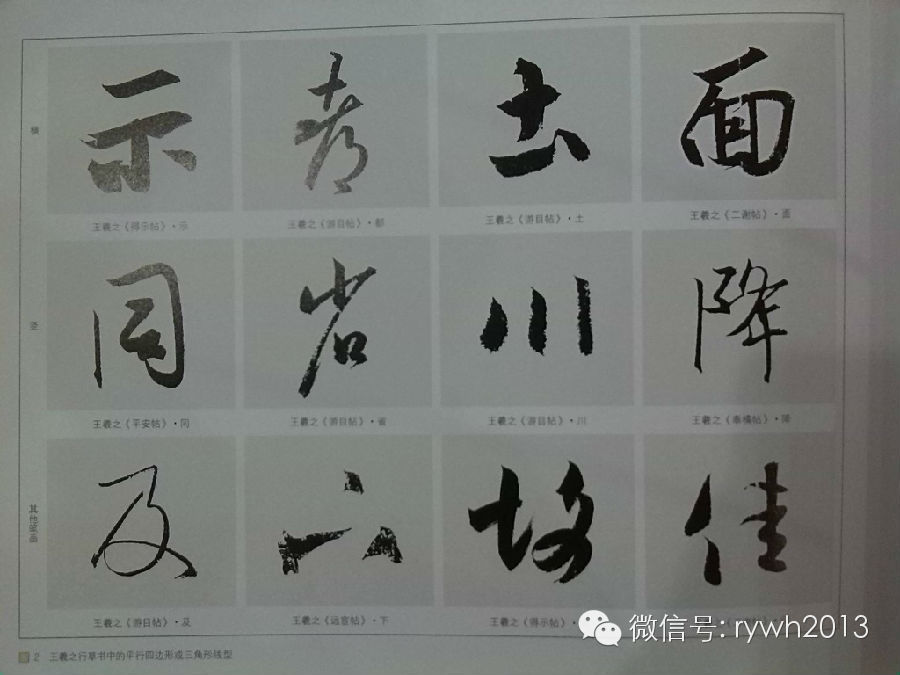 横
示
都
土
面
王羲之《得示帖》·示
王羲之《游目帖》·都
王羲之《游目帖》·土
王羲之《二谢帖》·面
竖
同
省
川
降
王羲之《平安帖》·同
王羲之《游目帖》·省
王羲之《游目帖》·川
王羲之《奉橘帖》·降
其他笔画
及
下
佳
王羲之《游目帖》·及
王羲之《远宦帖》·下
王羲之《得示帖》·
微信号: rywh2013
图 2 王羲之行草书中的平行四边形或三角形线型